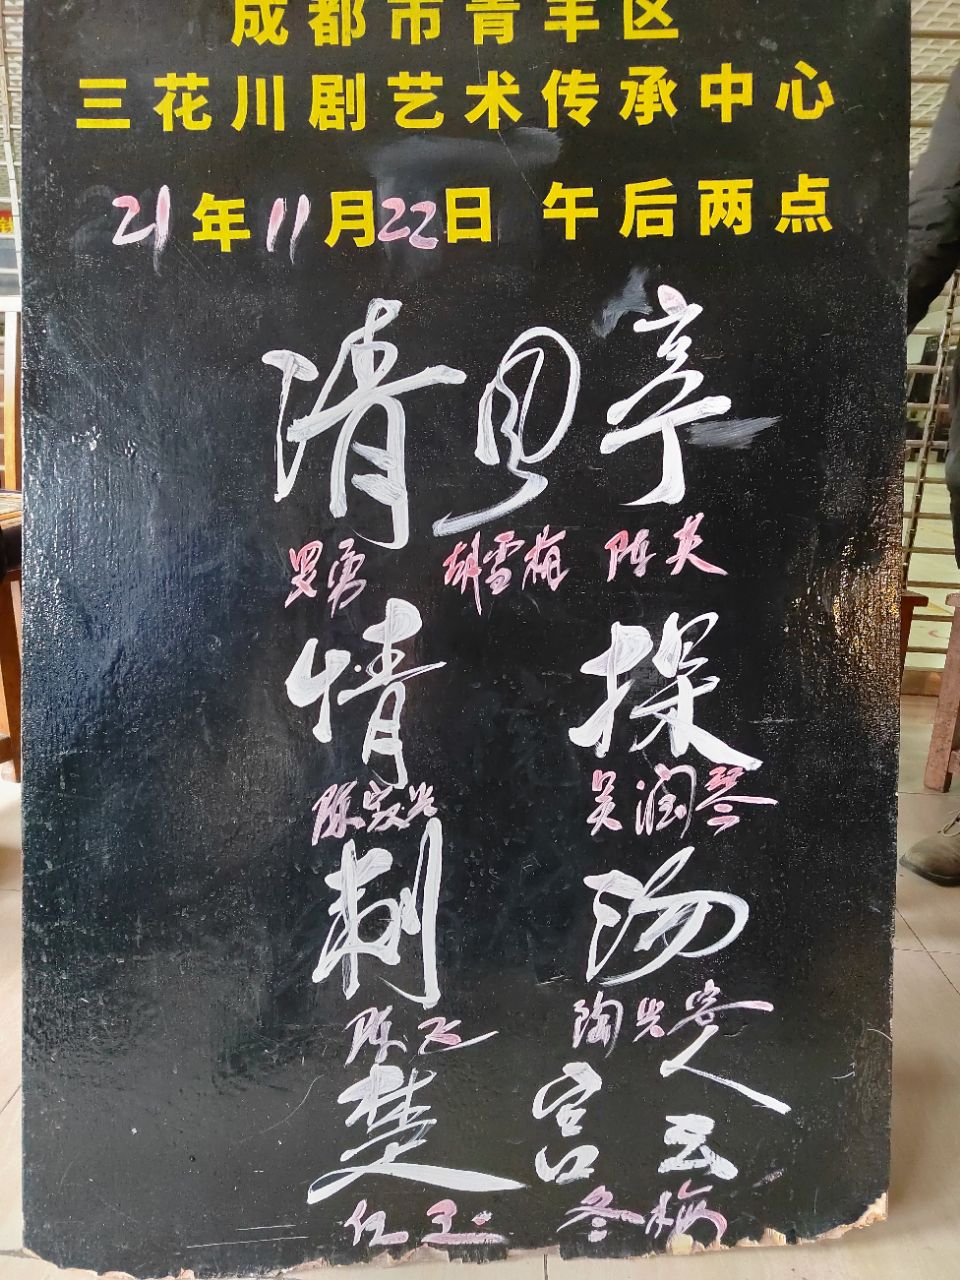 成都市青羊区
三花川剧艺术传承中心
21年11月22日 午后两点
清风亭
罗勇 胡雪梅 陈英
情探
陈发兴 吴润琴
刺汤
陈飞 陶兴容
楚宫会
红卫 冬梅